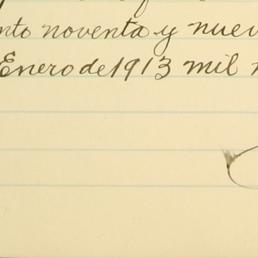 nto noventa y nuev
Enero de 1913 mil n